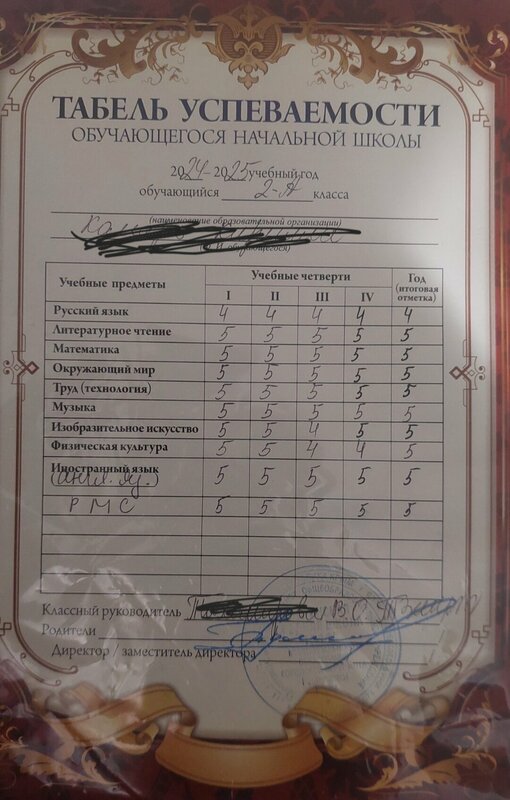 ТАБЕЛЬ УСПЕВАЕМОСТИ
ОБУЧАЮЩЕГОСЯ НАЧАЛЬНОЙ ШКОЛЫ
2024-2025 учебный год
обучающийся 2-А класса
(наименование образовательной организации)
Учебные предметы Учебные четверти Год (итоговая отметка)
I II III IV
Русский язык 4 4 4 4 4
Литературное чтение 5 5 5 5 5
Математика 5 5 5 5 5
Окружающий мир 5 5 5 5 5
Труд (технология) 5 5 5 5 5
Музыка 5 5 5 5 5
Изобразительное искусство 5 5 4 5 5
Физическая культура 5 5 4 4 5
Иностранный язык
(англ. яз.) 5 5 5 5 5
РМС 5 5 5 5 5
Классный руководитель В.О.
Родители
Директор заместитель директора